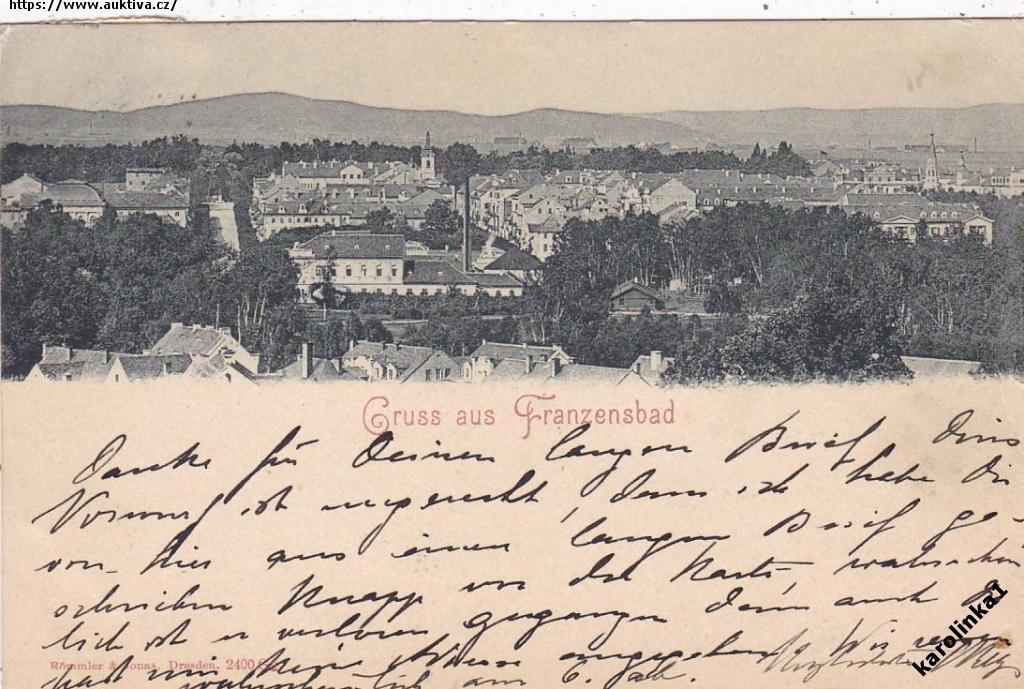 https://www.auktiva.cz/
Gruss aus Franzensbad
Danke für Deinen langen Brief, Dein
Vorwurf ist ungerecht, denn ich habe Dir
von hier aus einen langen Brief ge-
schrieben knapp vor der Karte, wahrschein
lich ist er verloren gegangen denn auch
hat mir meine angegeben. Wir
wahrscheinlich am 6. Feb.
Römmler & Jonas, Dresden. 2400
karolinka1